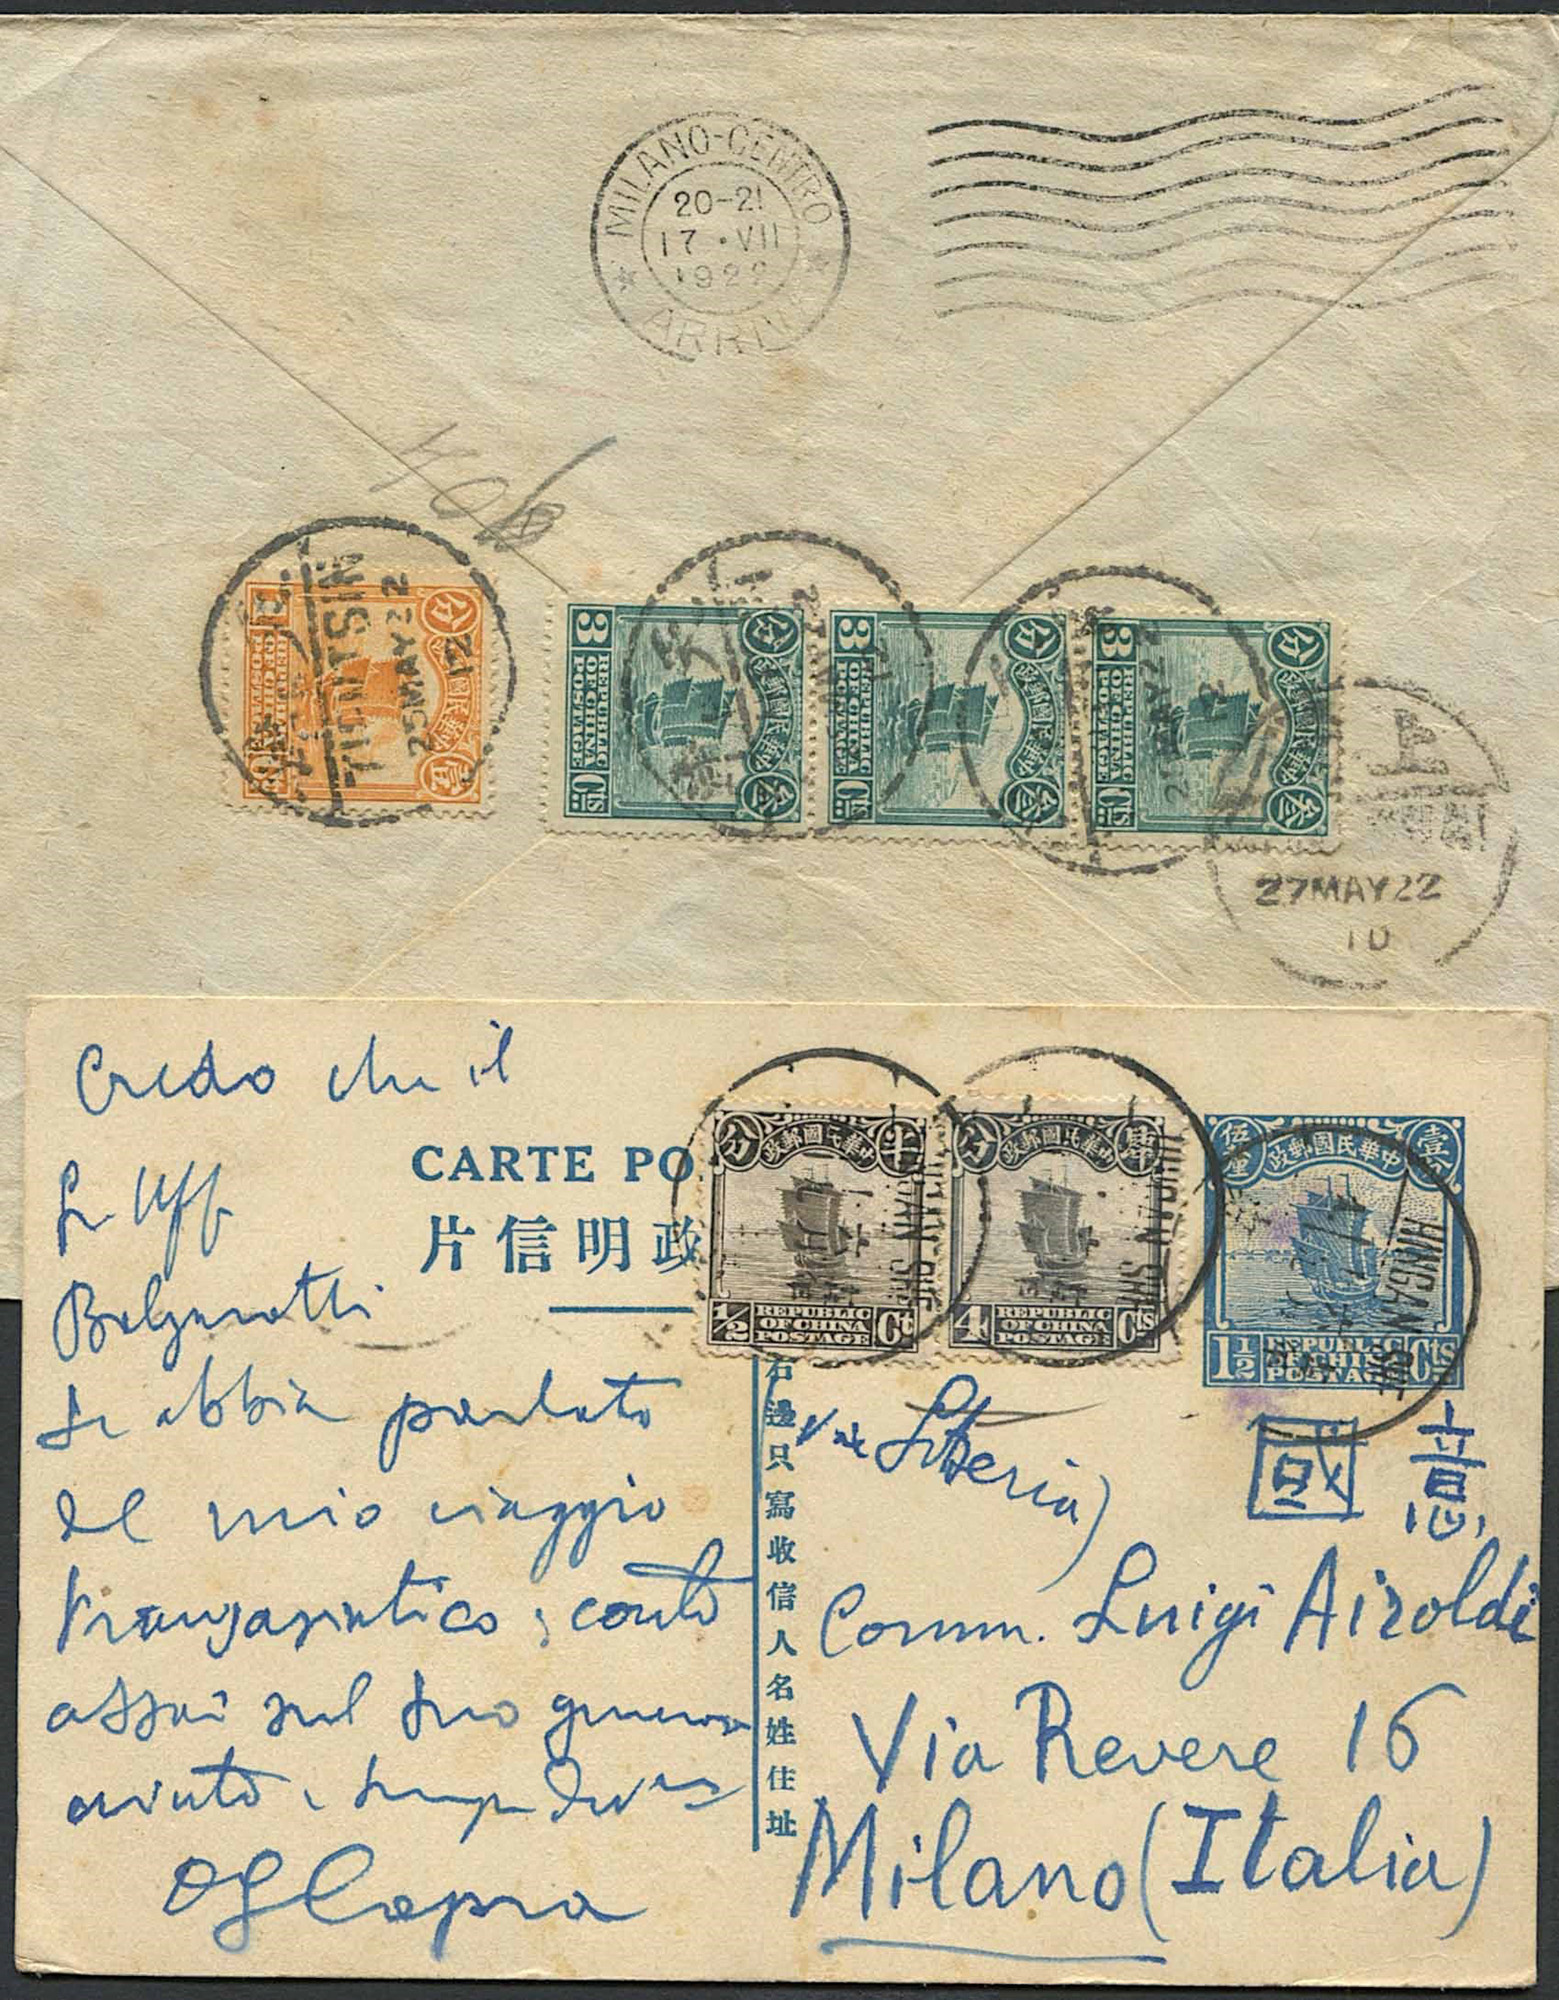 MILANO-CENTRO
20-21
17·VII
1922
ARRIVI
40
TIENTSIN
25 MAY 22
12
1 Ct
分 壹
REPUBLIC
OF CHINA
POSTAGE
3 Cts
分 叁
REPUBLIC
OF CHINA
POSTAGE
3 Cts
分 叁
REPUBLIC
OF CHINA
POSTAGE
3 Cts
分 叁
REPUBLIC
OF CHINA
POSTAGE
上
27MAY22
10
Credo che il
Belgeratti
abbia parlato
del mio viaggio
transasiatico; conto
assai sul suo generoso
aiuto
CARTE PO
片信明政
分 半
政郵國民華中
1/2 Ct
REPUBLIC
OF CHINA
POSTAGE
分 肆
政郵國民華中
4 Cts
REPUBLIC
OF CHINA
POSTAGE
伍釐 壹分
政郵國民華中
1 1/2 Cts
REPUBLIC
OF CHINA
POSTAGE
HINGAN SHE
右邊只寫收信人名姓住址
(via Siberia)
國 意
Comm. Luigi Airoldi
Via Revere 16
Milano (Italia)